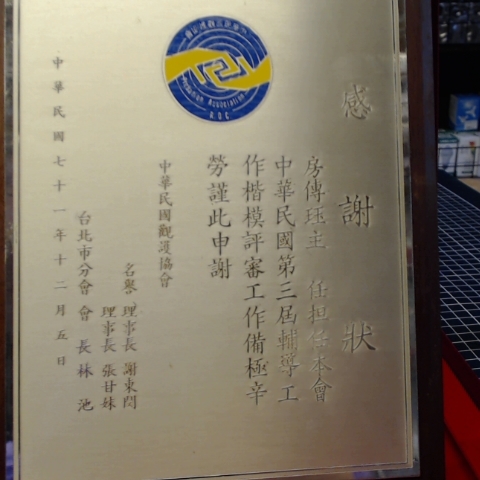 感謝狀
房傳珏主 任担任本會
中華民國第三屆輔導工
作楷模評審工作備極辛
勞謹此申謝
中華民國觀護協會
名譽理事長 謝東閔
理事長 張甘妹
台北市分會會長林 池
中華民國七十一年十二月五日
Probation Association
R.O.C